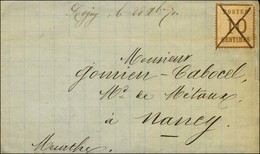 POSTES
10
CENTIMES
Monsieur
Gomien-Cabocel
Md de Métaux
à
Nancy
Meurthe